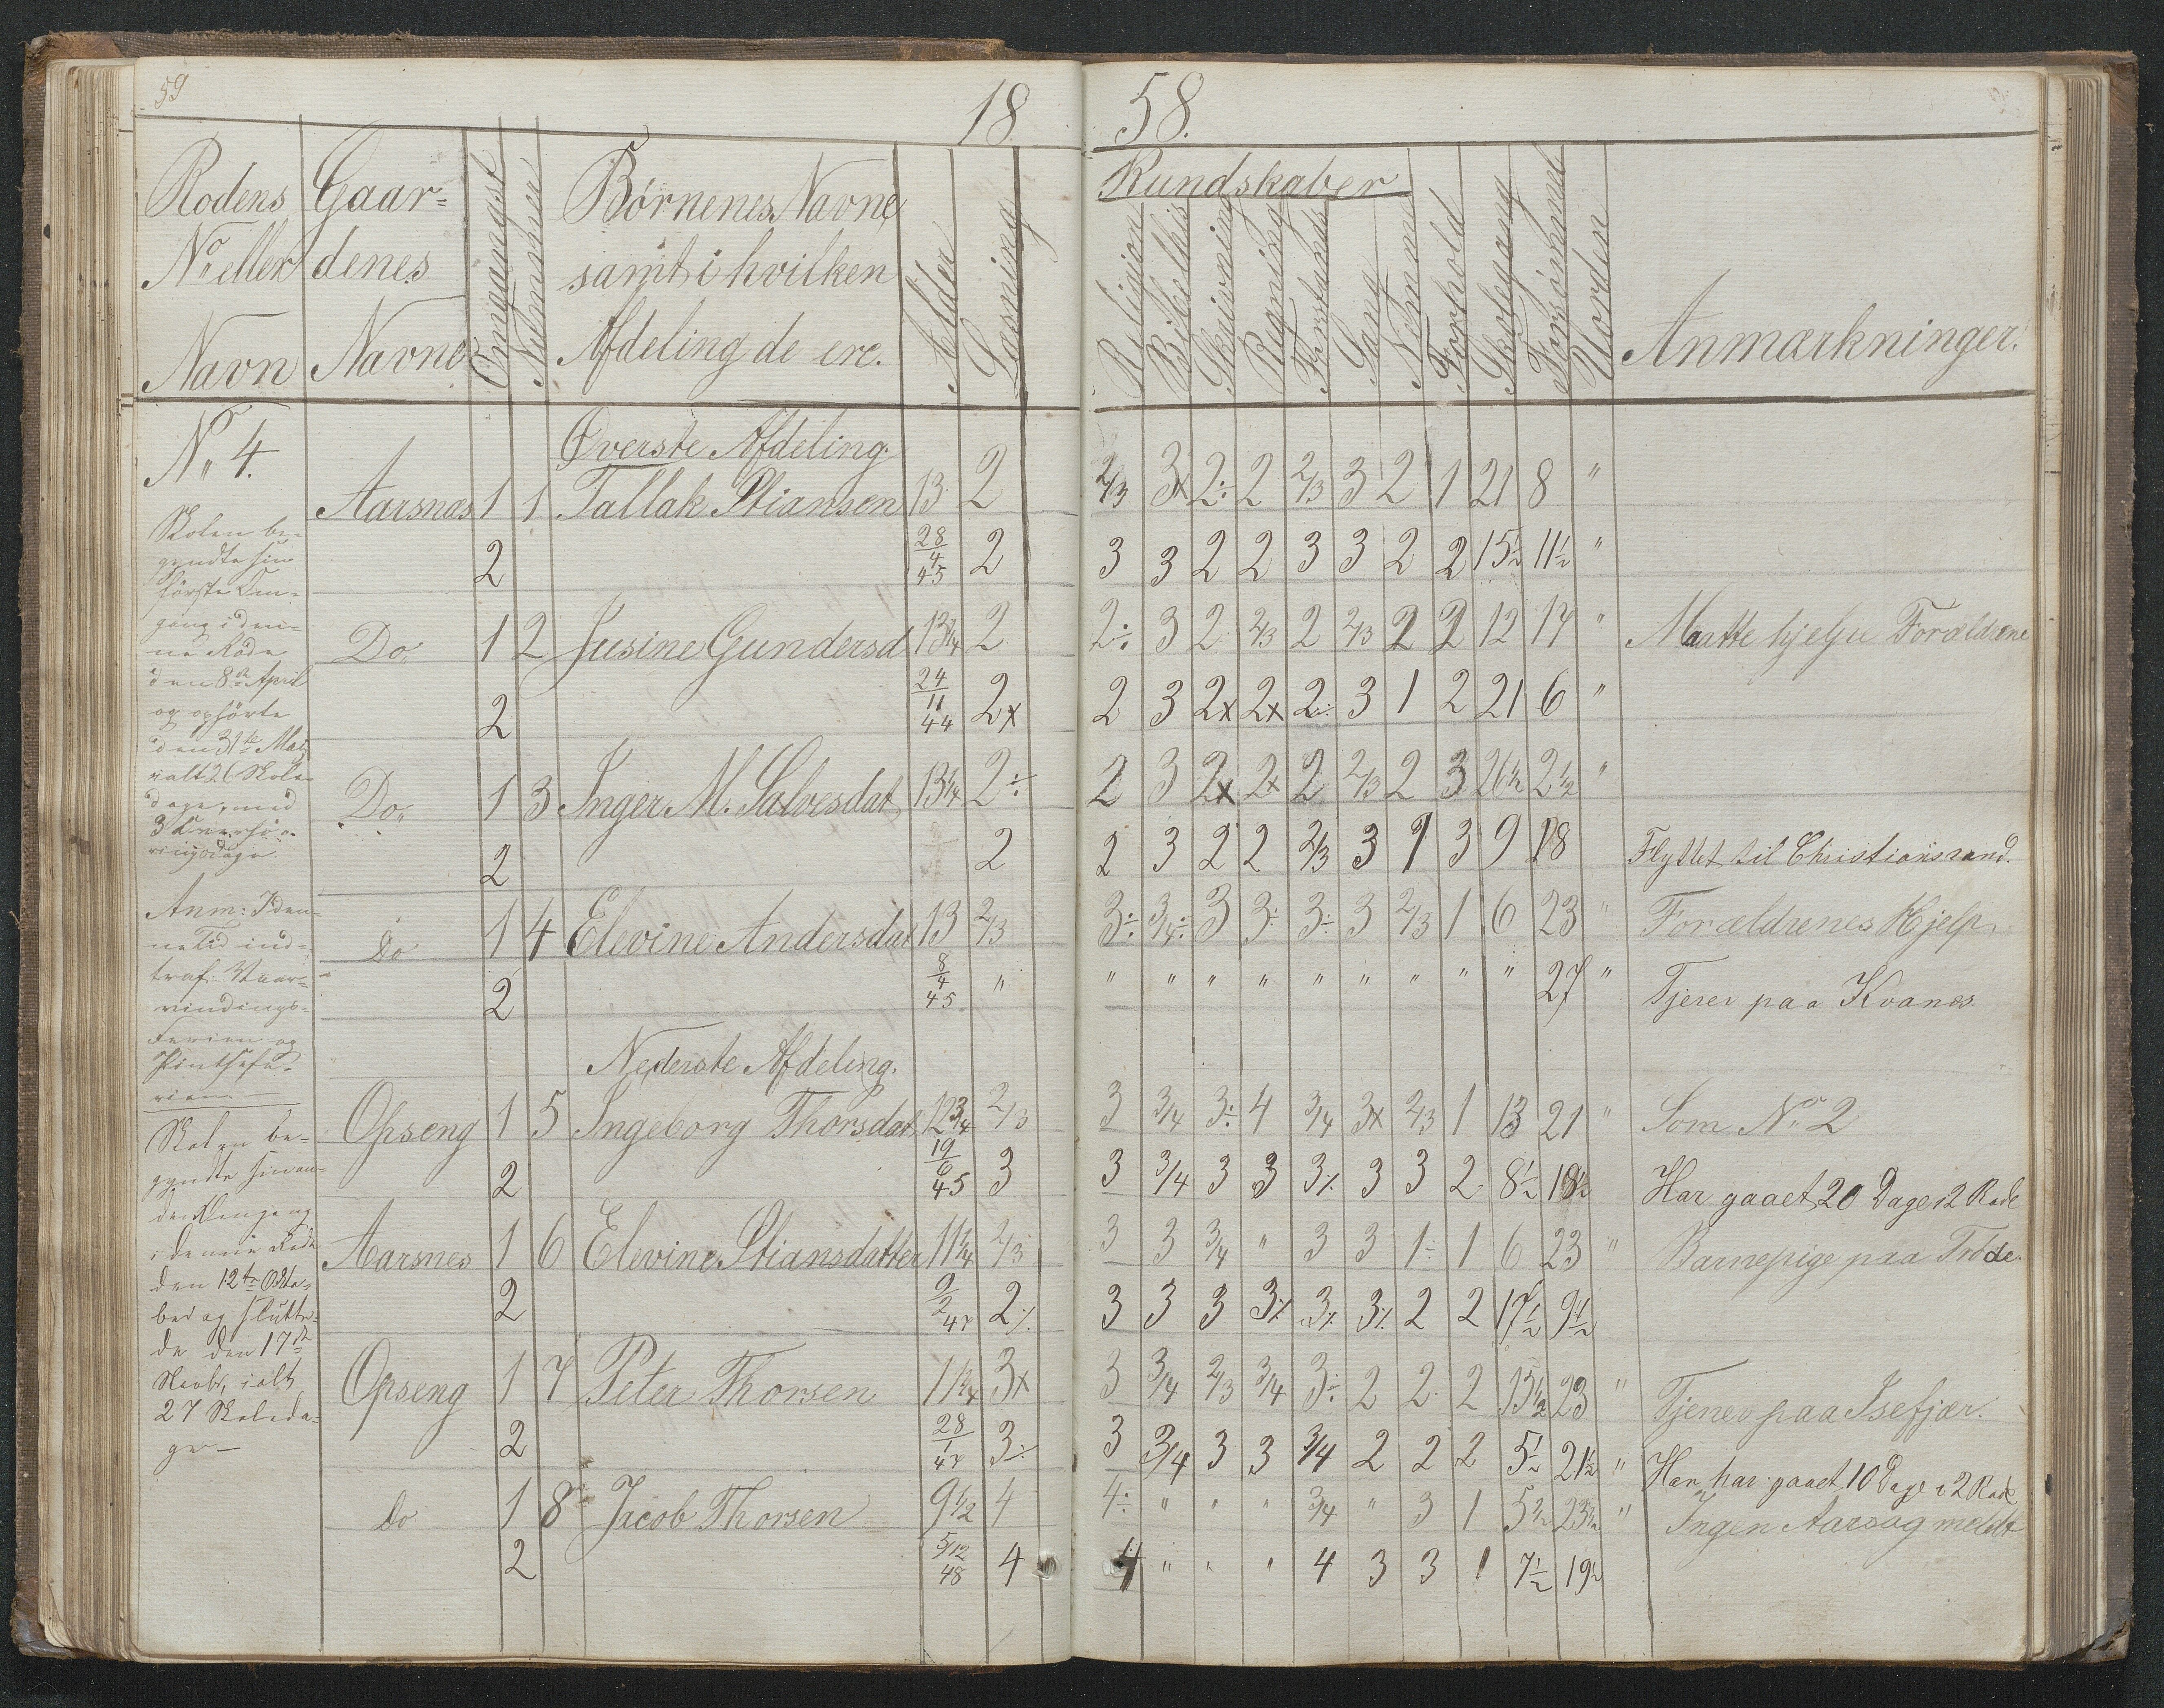 59
18
58.
Rodens Gaar- Omgangst Nummer Børnenes Navne Alder Læsning
No eller denes samt i hvilken
Navn Navne Afdeling de ere.
Kundskaber
Religion Skrivning Regning Sang Nemme Forhold Skolegang Forsømmel Uorden Anmærkninger.
No 4. Øverste Afdeling.
Aarsnæs 1 1 Tallak Stiansen 13 2 2/3 3x 2÷ 2 2/3 3 2 1 21 8 "
2 28/4 45 2 3 3 2 2 3 3 2 2 15½ 11½ "
Do 1 2 Jusine Gundersd 13¼ 2 2÷ 3 2 2/3 2 2/3 2 2 12 17 " Maatte hjelpe Forældrene
2 24/11 44 2x 2 3 2x 2x 2÷ 3 1 2 21 6 "
Do 1 3 Inger M. Salvesdat 13¼ 2÷ 2 3 2x 2x 2 2/3 2 3 26½ 2½ "
2 2 2 3 2 2 2/3 3 1 3 9 18 Flyttet til Christianssand.
Do 1 4 Elevine Andersdat 13 2/3 3÷ 3/4÷ 3 3÷ 3÷ 3 2/3 1 6 23 " Forældrenes Hjelp
2 8/4 45 " " " " " " " " " " 27 " Tjener paa Kvanæs
Nederste Afdeling.
Opseng 1 5 Ingeborg Thorsdat 12¾ 2/3 3 3/4 3÷ 4 3/4 3x 2/3 1 13 21 " Som No 2
2 19/6 45 3 3 3/4 3 3 3% 3 3 2 8½ 18½ Har gaaet 20 Dage i 2 Rode
Aarsnes 1 6 Elevine Stiansdatter 11¼ 2/3 3 3 3/4 " 3 3 1÷ 1 6 23 " Barnepige paa Trøde.
2 9/2 47 2% 3 3 3 3% 3% 3% 2 2 17½ 9½
Opseng 1 7 Peter Thorsen 11¼ 3x 3 3/4 2/3 3/4 3÷ 2 2 2 13½ 23 " Tjener paa Isefjær.
2 28/1 47 3÷ 3 3/4 3 3 3/4 2 2 2 5½ 21½ " Han har gaaet 10 Dage i 2 Rode
Do 1 8 Jacob Thorsen 9½ 4 4÷ " " " 3/4 " 3 1 5½ 23½ " Ingen Aarsag meldt
2 5/12 48 4 4 " " " 4 3 3 1 7½ 19½
Skolen be-
gyndte sin
første Om-
gang i den-
ne Rode
den 8de April
og ophørte
den 31te Mai
ialt 26 Skole-
dage, med
3
Anm: I den-
ne Tid ind-
traf Vaar-
vindings-
Ferien og
Pintsefe-
rien. —
Skolen be-
gyndte sin an-
den Omgang
i denne Rode
den 12te Okto-
ber og slutte-
de den 17de
Novbr, ialt
27 Skoleda-
ge —